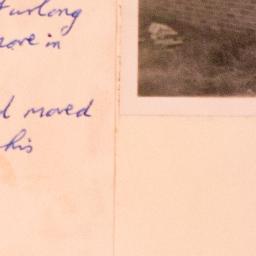 Furlong
more in
d moved
his